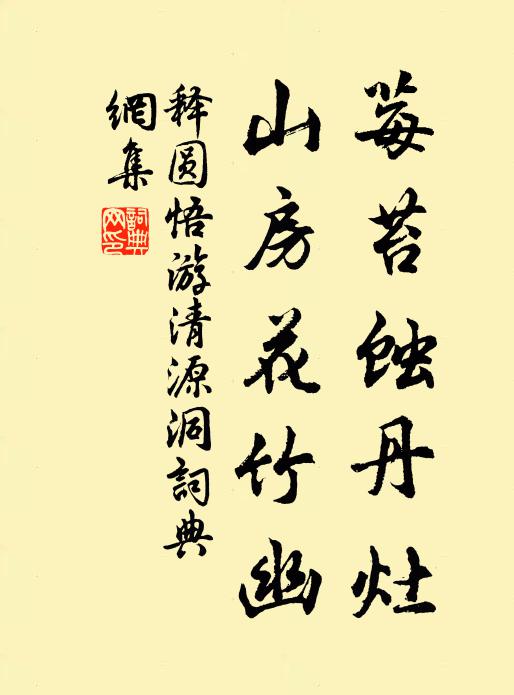 莓苔蚀丹灶
山房花竹幽
释圆悟游清源洞詞典
網集
詞典
网印